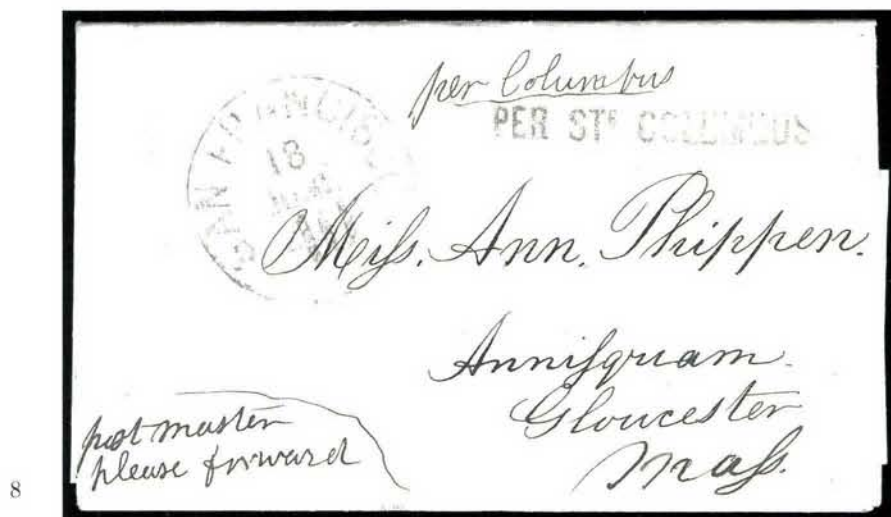 per Columbus
PER STR COLUMBUS
SAN FRANCISCO
18
Miſs. Ann. Phippen.
Anniſquam.
Gloucester
Maſs.
post master
please forward
8